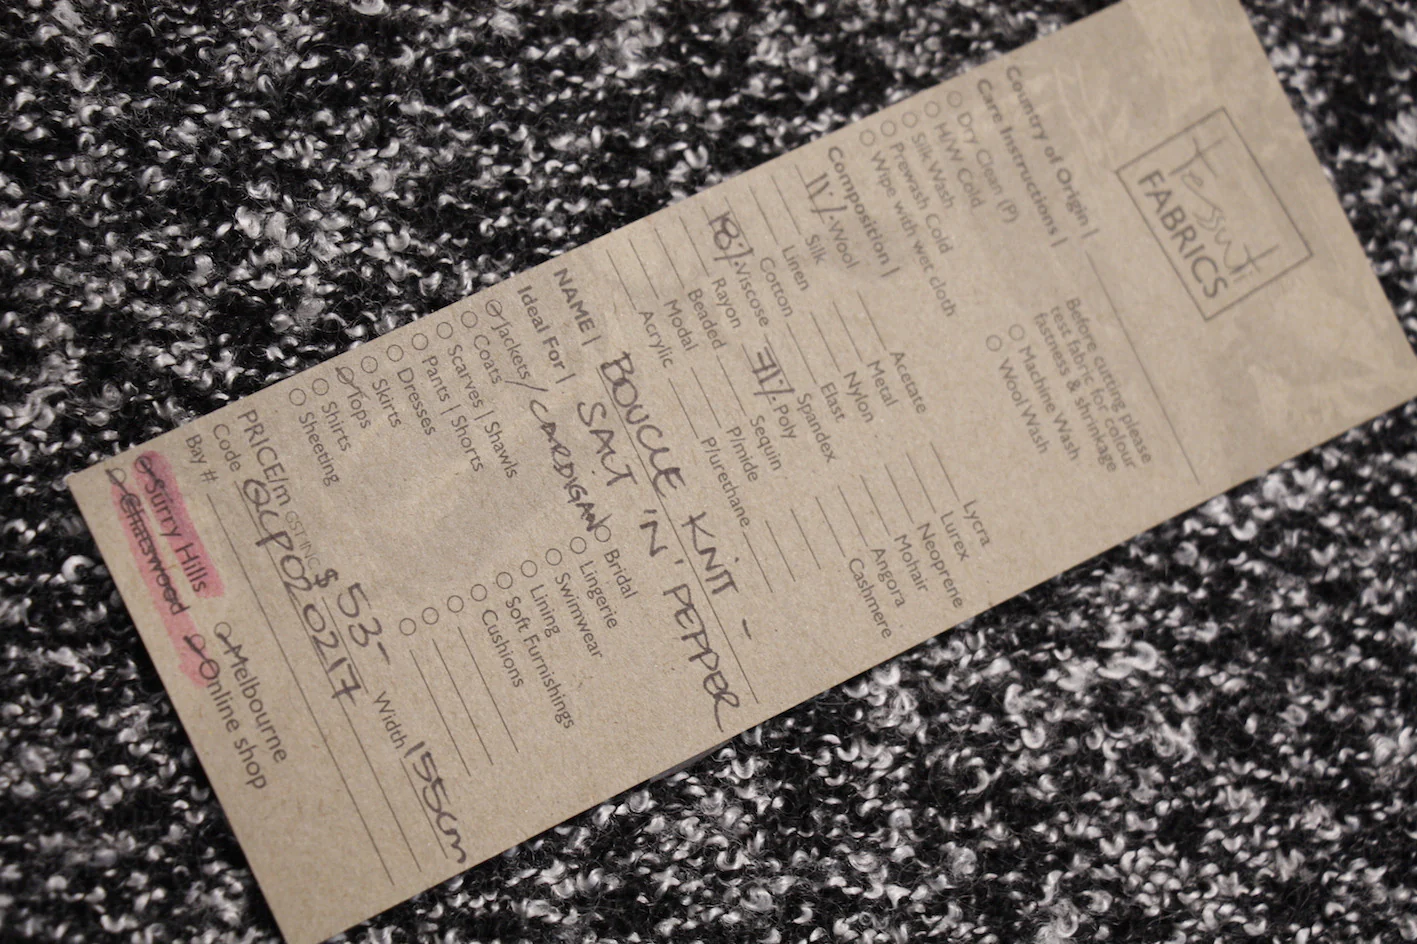 tessuti
FABRICS
Country of Origin |
Care Instructions |
Before cutting please
test fabric for colour
fastness & shrinkage
Dry Clean (P)
H/W Cold
Silk Wash
Prewash Cold
Wipe with wet cloth
Machine Wash
Wool Wash
Composition |
11% Wool Acetate Lycra
Silk Metal Lurex
Linen Nylon Neoprene
Cotton Elast Mohair
18% Viscose Spandex Angora
Rayon 71% Poly Cashmere
Beaded Sequin
Modal P/mide
Acrylic P/urethane
NAME | BOUCLE KNIT -
SALT 'N' PEPPER
Ideal For |
Jackets / CARDIGAN Bridal
Coats Lingerie
Scarves | Shawls Swimwear
Pants | Shorts Lining
Dresses Soft Furnishings
Skirts Cushions
Tops
Shirts
Sheeting
PRICE/m GST INC $53- Width 155cm
Code QLP020217
Bay #
Surry Hills Melbourne
Chatswood Online shop